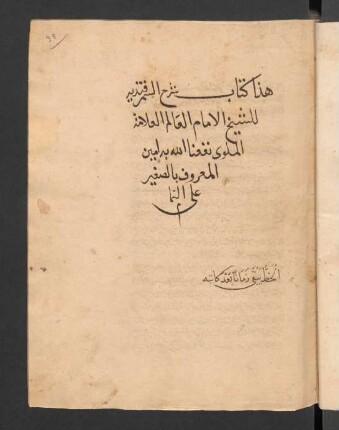 هذا كتاب شرح السمرقنديه
للشيخ الامام العالم العلامة
الملوى نفعنا الله به امين
المعروف بالصغير
على التما
الخط يبقى زمانا بعد كاتبه